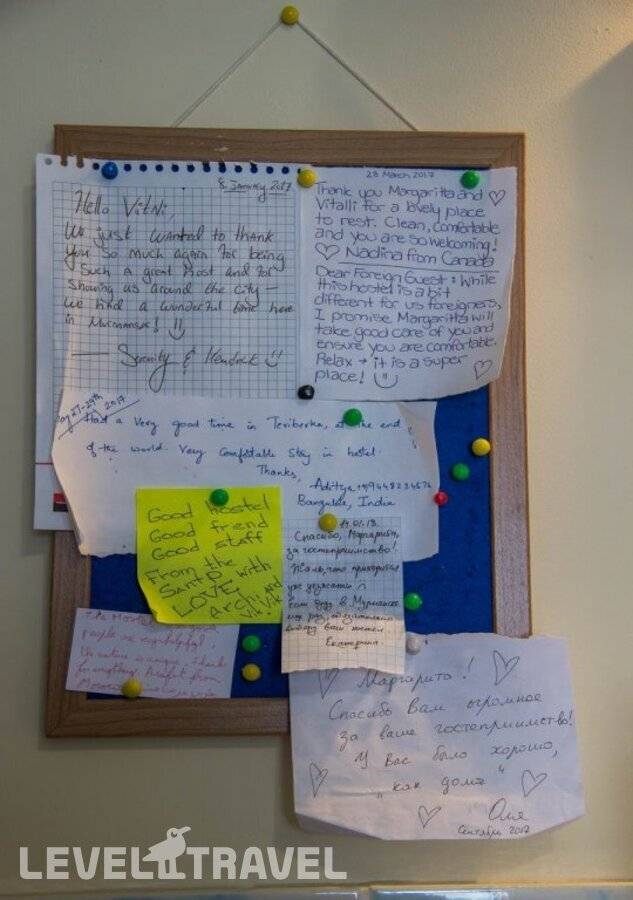 8 January 2017
Hello
We just wanted to thank
you so much again for being
such a great host and for
showing us around the city -
we had a wonderful time here
in Murmansk!
Serenity &
28 March 2017
Thank you Margaritta and
Vitalli for a lovely place
to rest. Clean, comfortable
and you are so welcoming!
Nadina from Canada
Dear Foreign Guest: While
this hostel is a bit
different for us foreigners,
I promise Margaritta will
take good care of you and
ensure you are comfortable.
Relax → it is a super
place!
27-29th 2017
Had a very good time in Teriberka, at the end
of the world. Very Comfortable Stay in hostel.
Thanks,
Aditya
Bangalore, India
Good hostel
Good friend
Good staff
From the
Santo with
LOVE
14.01.18.
Спасибо, Маргарита,
за гостеприимство!
Жаль, что приходится
уже уезжать
Если буду в Мурманске
еще раз, обязательно
выберу ваш хостел
Екатерина.
people are very helpful.
Маргарита!
Спасибо Вам огромное
за ваше гостеприимство!
У Вас было хорошо,
"как дома"
Оля
Сентябрь 2017
LEVEL TRAVEL